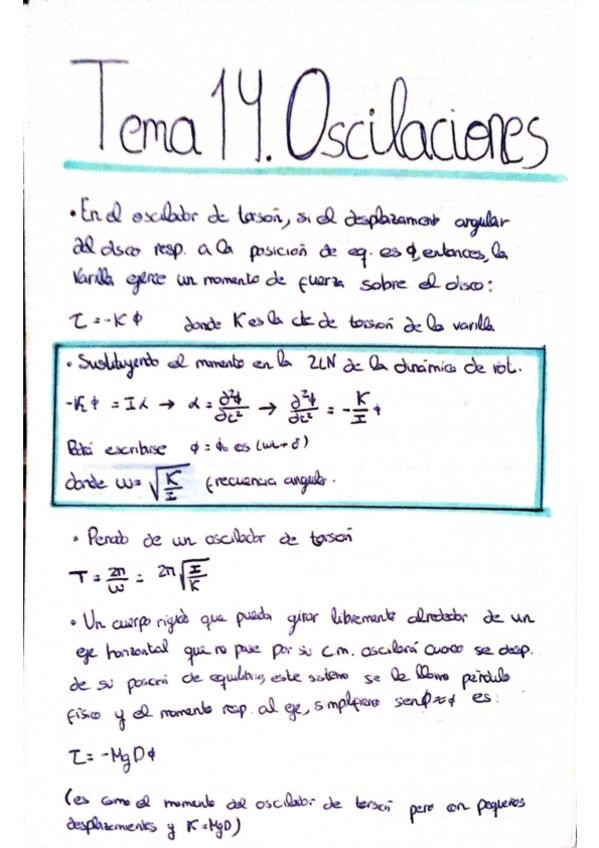 Tema 14. Oscilaciones
• En el oscilador de torsión, si el desplazamiento angular
del disco resp. a la posición de eq. es ϕ, entonces, la
varilla ejerce un momento de fuerza sobre el disco:
τ = -K ϕ donde K es la cte de torsión de la varilla
• Sustituyendo el momento en la 2LN de la dinámica de rot.
-Kϕ = Iα → α = ∂²ϕ/∂t² → ∂²ϕ/∂t² = -K/I ϕ
Podrá escribirse ϕ = ϕ₀ cos (ωt + δ)
donde ω = √(K/I) frecuencia angular.
• Periodo de un oscilador de torsión
T = 2π/ω = 2π √(I/K)
• Un cuerpo rígido que pueda girar libremente alrededor de un
eje horizontal que no pase por su c.m. oscilará cuando se desp.
de su posición de equilibrio, este sistema se le llama péndulo
físico y el momento resp. al eje, simplificando senϕ ≈ ϕ es:
τ = -MgDϕ
(es como el momento del oscilador de torsión pero con pequeños
desplazamientos y K = MgD)